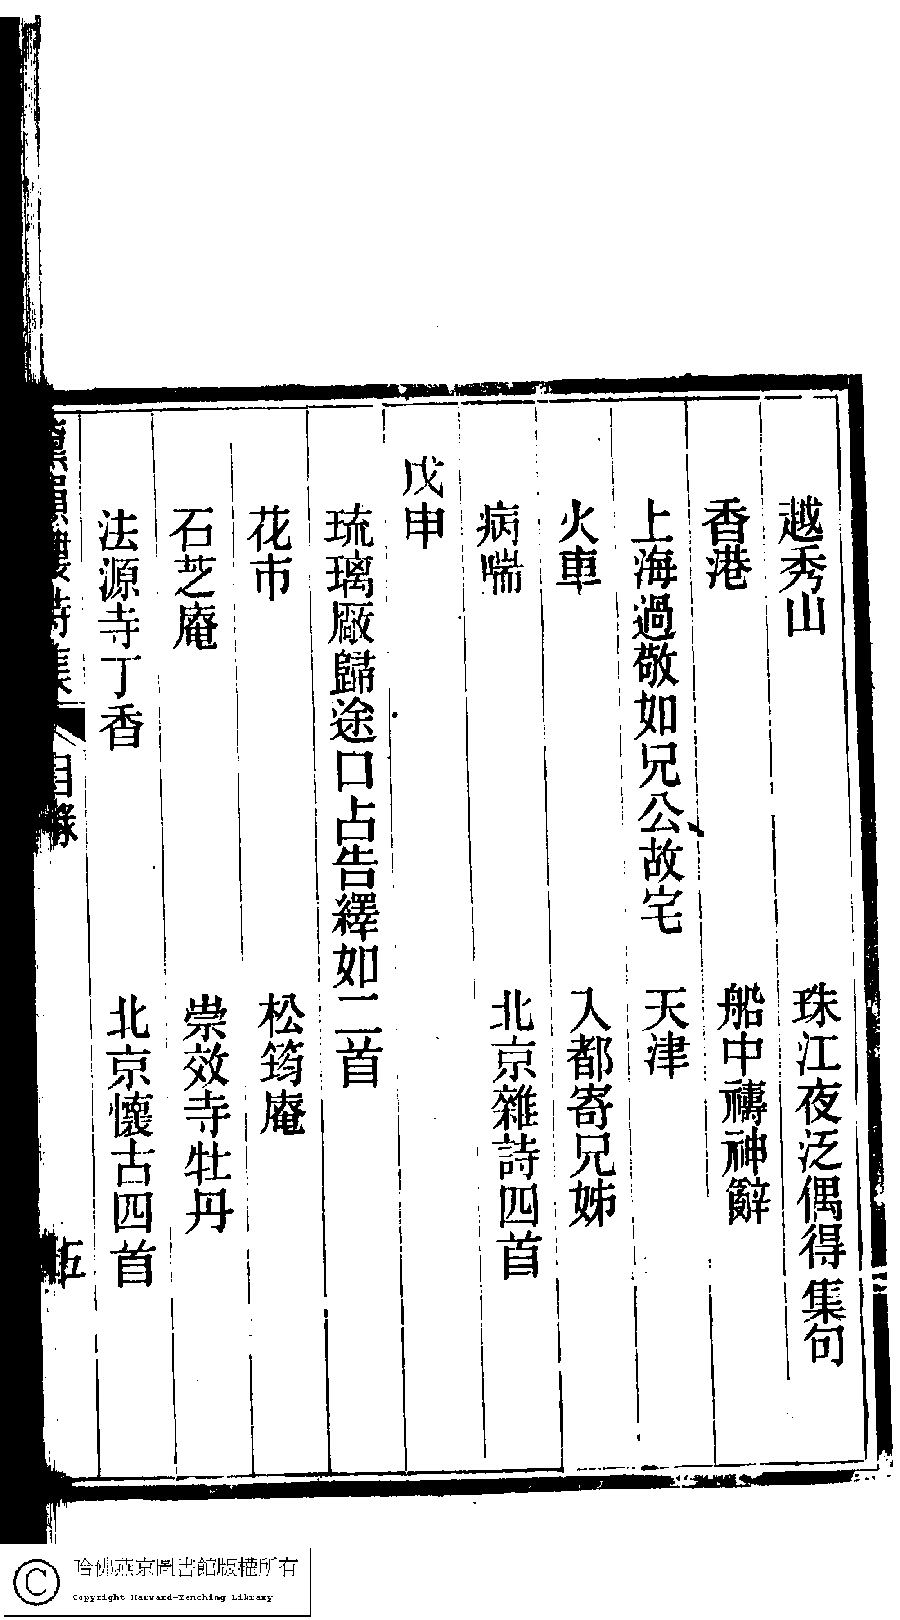 越秀山　珠江夜泛偶得集句
香港　船中禱神辭
上海過敬如兄公故宅　天津
火車　入都寄兄姊
病喘　北京雜詩四首
戊申
琉璃厰歸途口占告繹如二首
花市　松筠庵
石芝庵　崇效寺牡丹
法源寺丁香　北京懷古四首
詩集　目錄　五
哈佛燕京圖書館版權所有
Copyright Harvard-Yenching Library